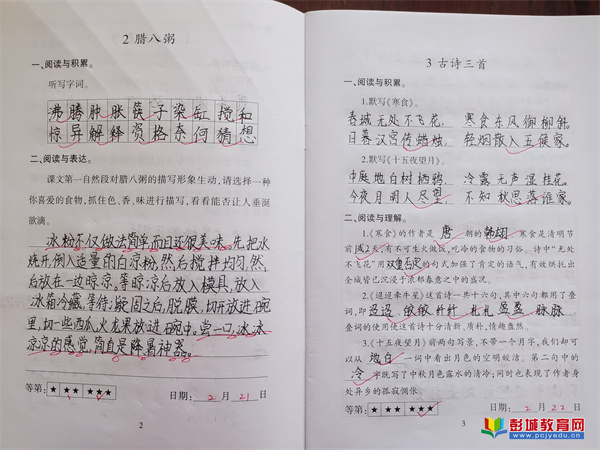 2 腊八粥
一、阅读与积累。
听写字词。
沸腾肿胀筷子染缸搅和
惊异解释资格奈何猜想
二、阅读与表达。
课文第一自然段对腊八粥的描写形象生动,请选择一种
你喜爱的食物,抓住色、香、味进行描写,看看能否让人垂涎
欲滴。
冰粉不仅做法简单,而且还很美味。先把水
烧开,倒入适量的白凉粉,然后搅拌均匀,然
后放在一边晾凉,等晾凉后放入模具,放入
冰箱冷藏,等待凝固之后,脱膜,切开放进碗
里,切一些西瓜火龙果放进碗中,尝一口,冰冰
凉凉的感觉,简直是降暑神器。
等第: ★ ★★ ★★★ 日期: 2 月 21 日
2
3 古诗三首
一、阅读与积累。
1.默写《寒食》。
春城无处不飞花, 寒食东风御柳斜。
日暮汉宫传蜡烛, 轻烟散入五侯家。
2.默写《十五夜望月》。
中庭地白树栖鸦, 冷露无声湿桂花。
今夜月明人尽望, 不知秋思落谁家。
二、阅读与理解。
1.《寒食》的作者是 唐 朝的 韩翃 。寒食是清明节
前 1或2 天,有不可生火做饭,吃冷的食物的习俗。诗中“无处
不飞花”用 双重否定 的句式加强了肯定的语气,有效烘托出
全城皆已沉浸于浓郁春意之中的盛况。
2.《迢迢牵牛星》这首诗一共十六句,其中六句都用了叠
词,即 迢迢、皎皎、纤纤、札札、盈盈、脉脉
叠词的使用使这首诗十分清新、质朴,情趣盎然。
3.《十五夜望月》前两句写景,不带一个月字,我们却可
以从 地白 一词中看出月色的空明皎洁。第二句中的
冷 字既写了中秋月色露水的清冷;同时也表现了作者身
处异乡的孤寂惆怅。
等第: ★ ★★ ★★★ 日期: 2 月 22 日
3
彭城教育网
www.pcjyedu.cn